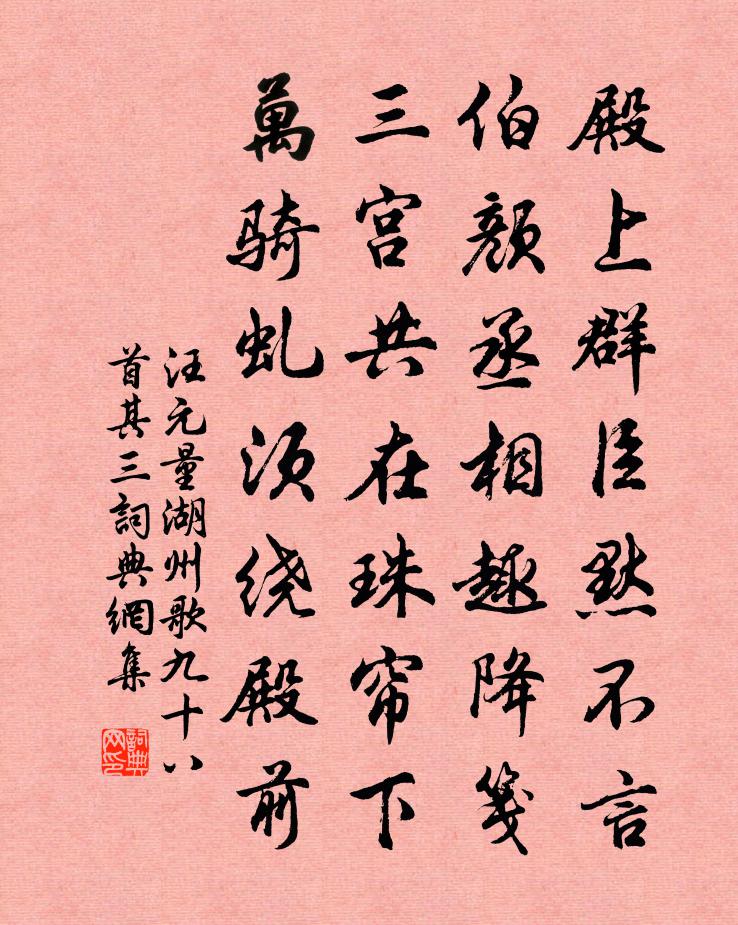 殿上群臣默不言
伯颜丞相趣降笺
三宫共在珠帘下
萬骑虬须绕殿前
汪元量湖州歌九十八
首其三詞典網集
詞典
网印